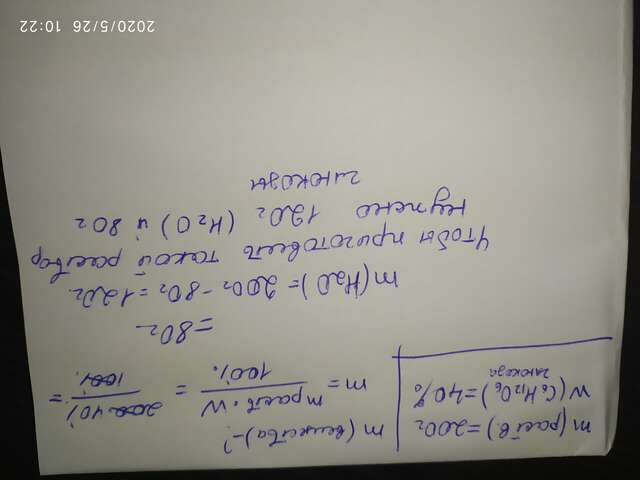 m(раств.)=200г
W(C₆H₁₂O₆)=40%
глюкоза
m(вещества)-?
m = mраств.·W / 100% = 200·40% / 100% =
=80г
m(H₂O)=200г-80г=120г
Чтобы приготовить такой раствор
нужно 120г (H₂O) и 80г
глюкозы
2020/5/26 10:22